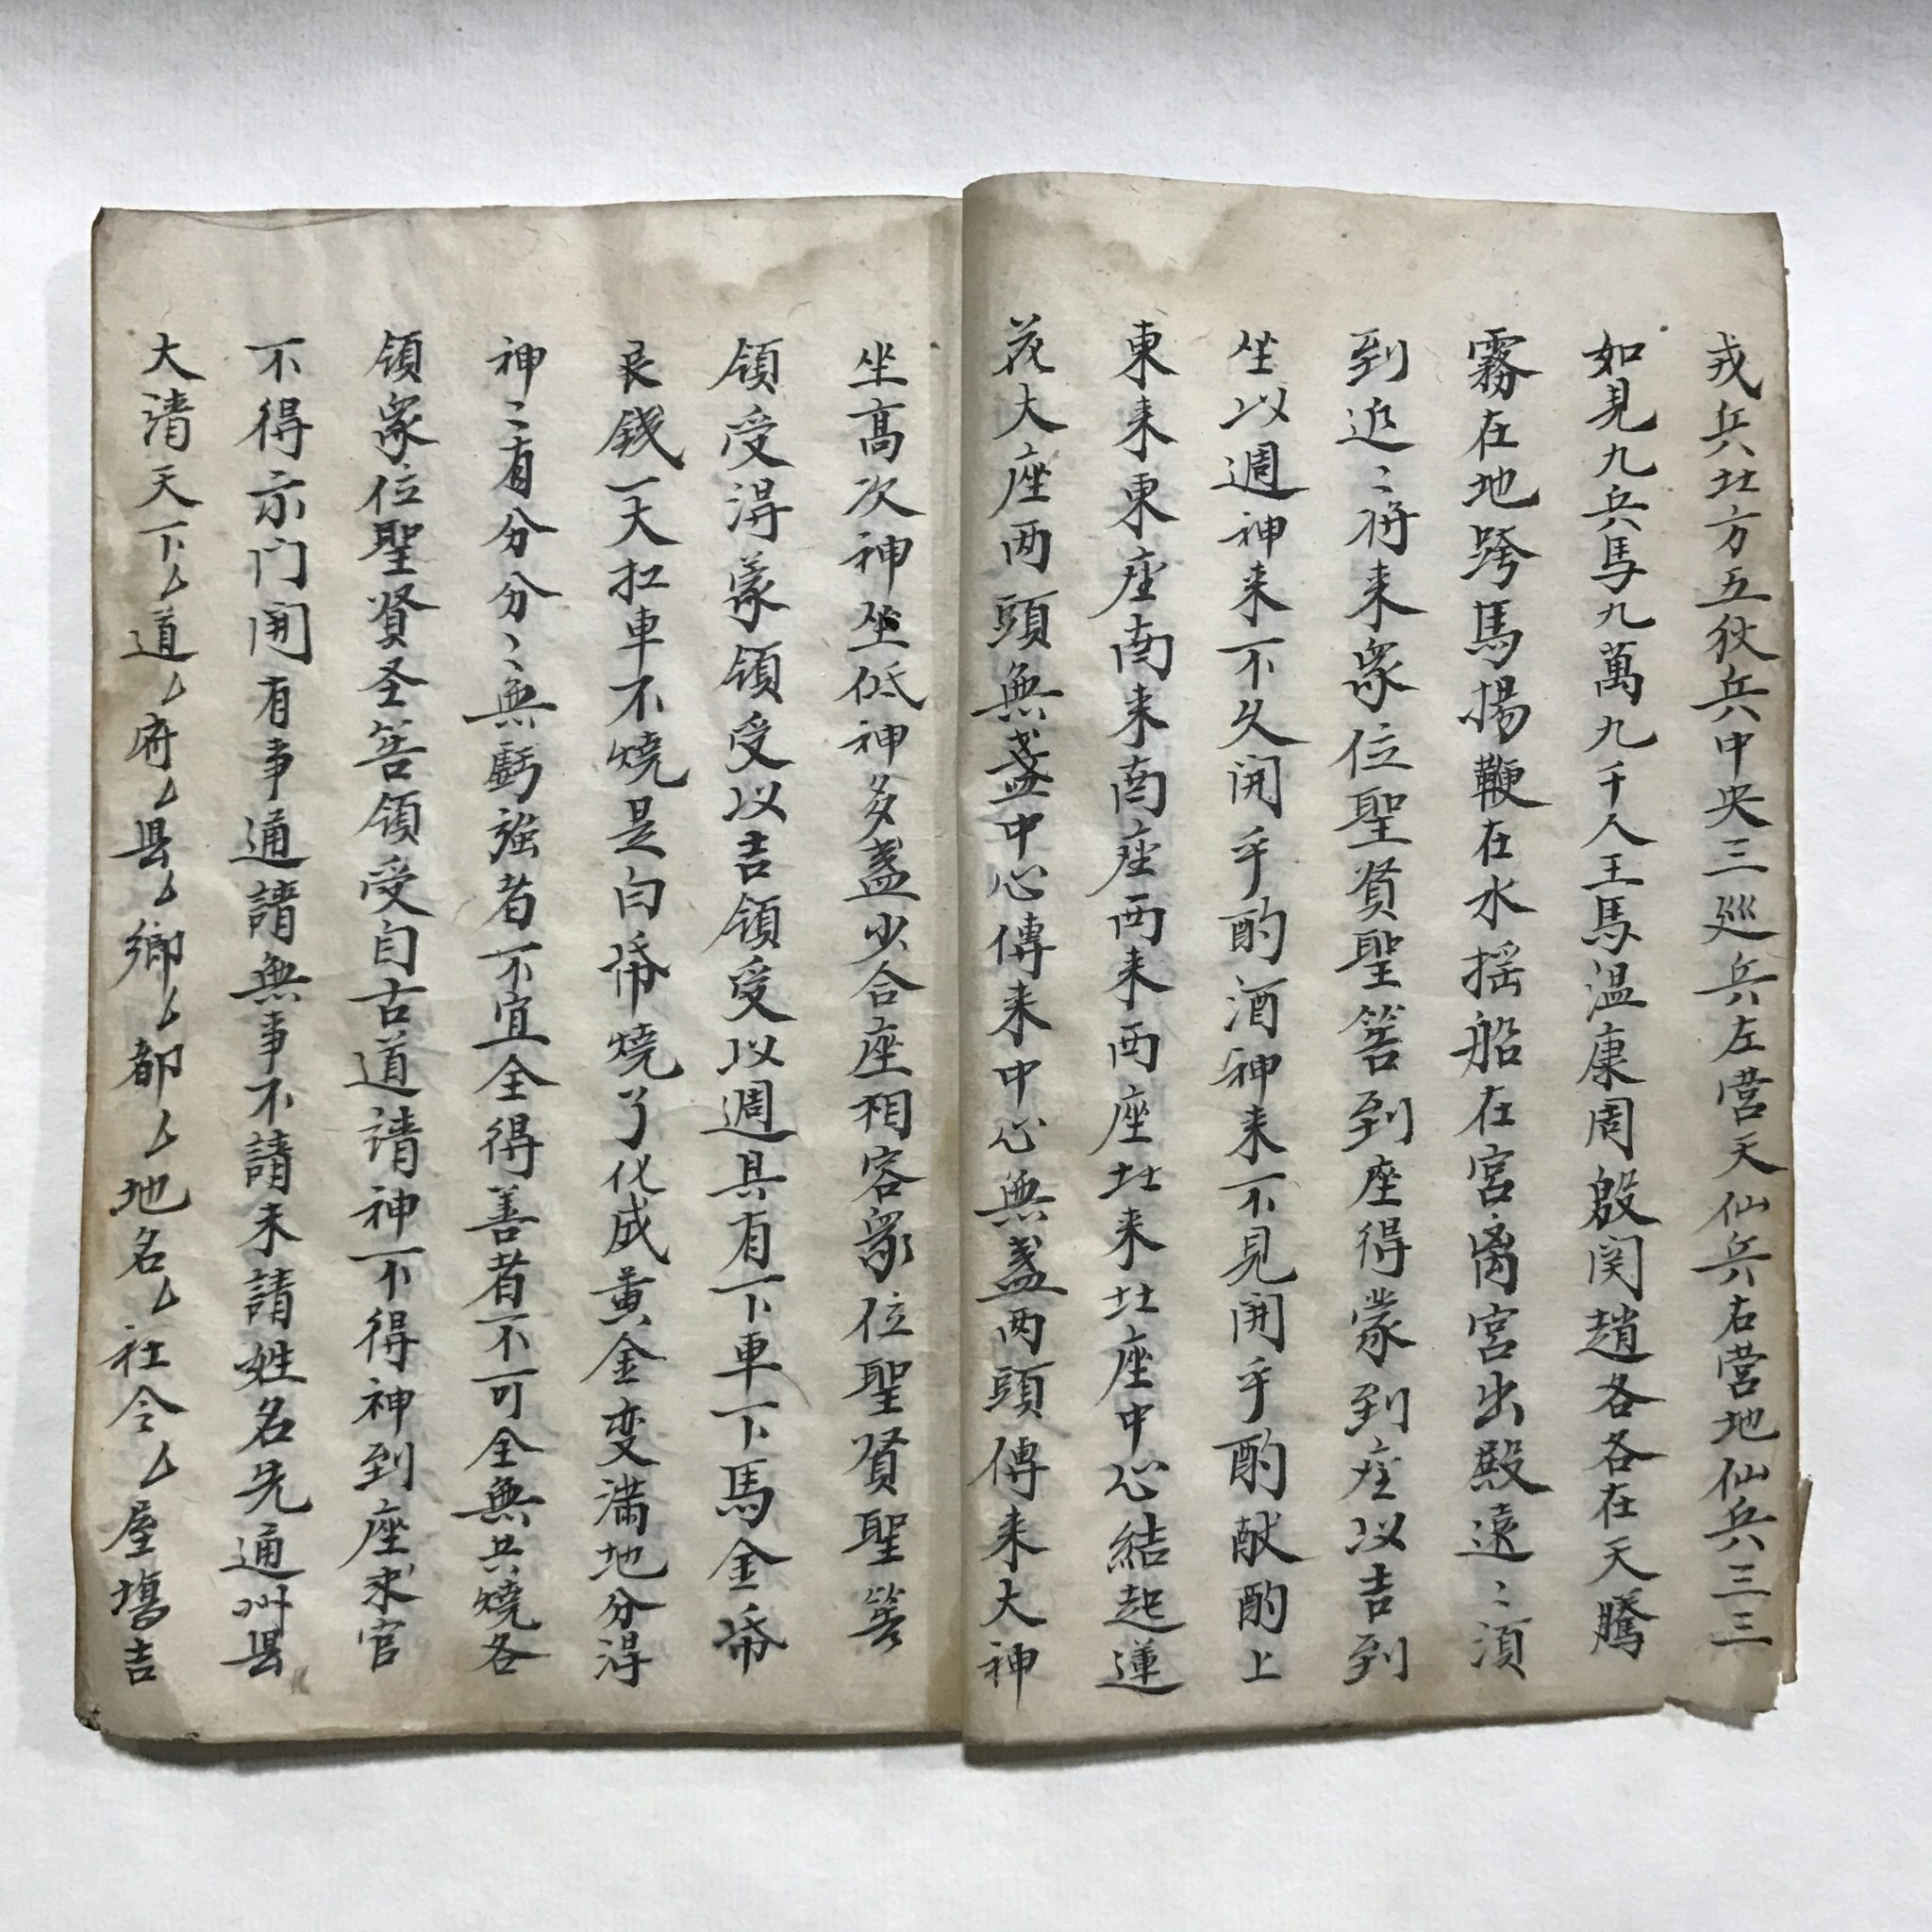 戎兵北方五狄兵中央三巡兵左营天仙兵右营地仙兵三三
如見九兵馬九萬九千人王馬温康周殷関趙各各在天騰
霧在地跨馬揚鞭在水摇船在宫离宫出殿遠〻須
到近〻将来众位聖賢聖筶到座得蒙到座以吉到
坐以週神来不久開乎酌酒神来不見開乎酌献酌上
東来東座南来南座西来西座北来北座中心結起蓮
花大座两頭無盏中心傳来中心無盏两頭傳来大神
坐高次神坐低神多盏少合座相容众位聖賢聖筶
領受淂蒙領受以吉領受以週具有下車下馬金帋
艮錢一大扛車不燒是白帋燒了化成黄金变满地分淂
神〻有分分〻無虧強者不宜全得善者不可全無共燒各
領众位聖賢圣筶領受自古道请神不得神到座求官
不得示门開有事通請無事不請未請姓名先通州县
大清天下厶道厶府厶县厶鄉厶都厶地名厶社令厶屋塲吉